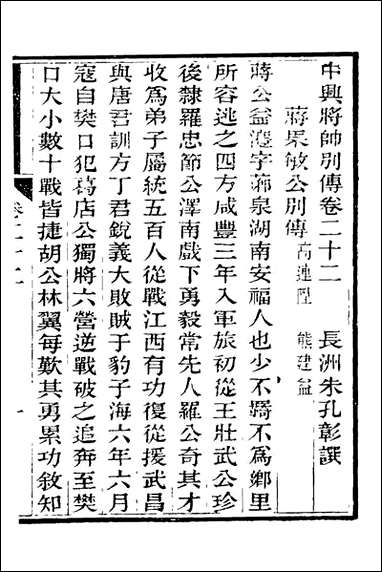 中興將帥別傳卷二十二　長洲朱孔彰譔
蔣果敏公別傳 高連陞 熊建益
蔣公益澧字薌泉湖南安福人也少不羈不爲鄉里
所容逃之四方咸豐三年入軍旅初從王壯武公珍
後隸羅忠節公澤南戲下勇毅常先人羅公奇其才
收爲弟子屬統五百人從戰江西有功復從援武昌
與唐君訓方丁君銳義大敗賊于豹子海六年六月
寇自樊口犯葛店公獨將六營逆戰破之追奔至樊
口大小數十戰皆捷胡公林翼每歎其勇累功敘知
卷二十二
一